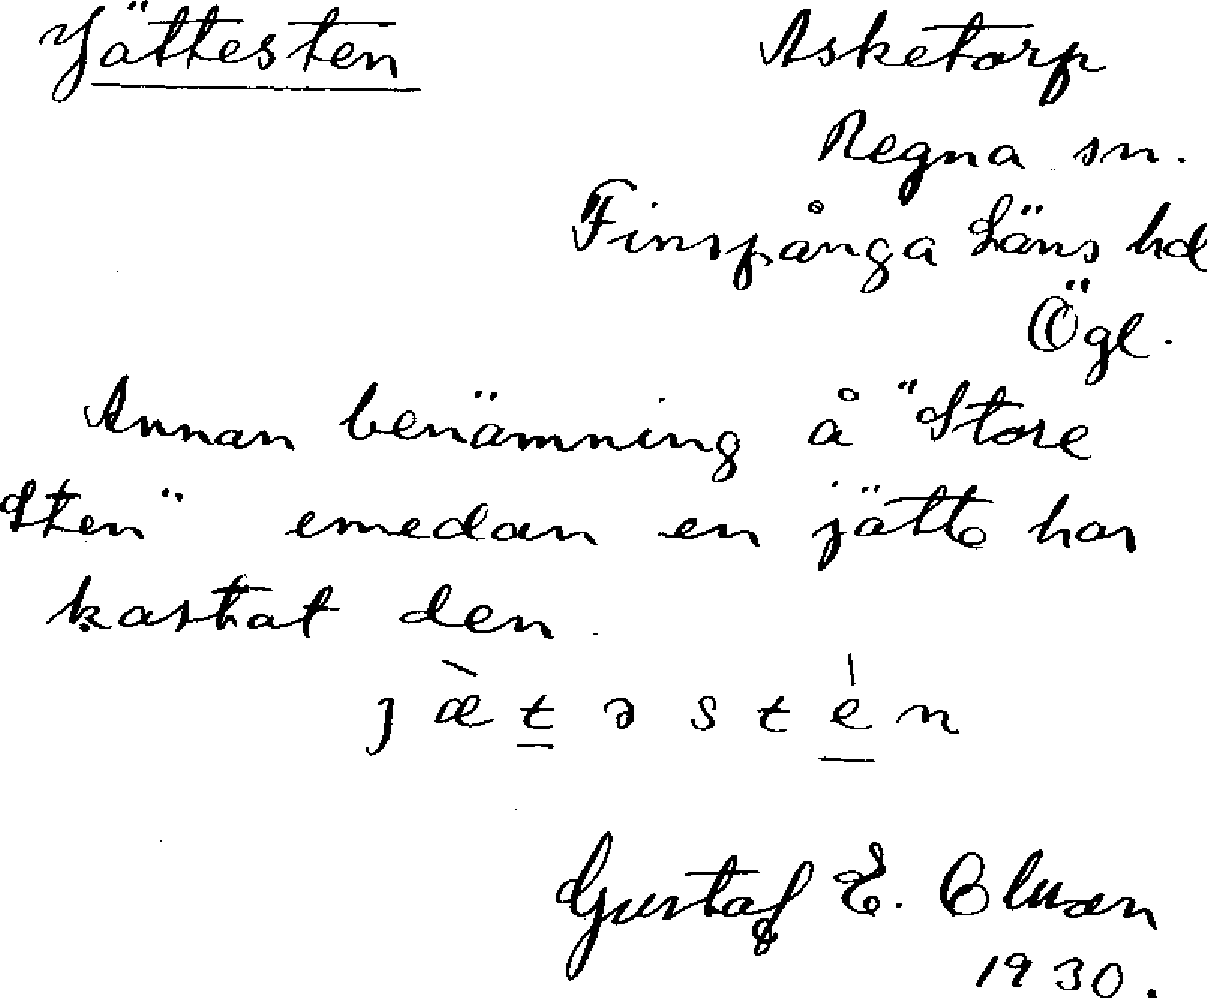 Jättesten
Asketorp
Regna sn.
Finspånga Läns hd
Ögl.
Annan benämning å "Store
Sten" emedan en jätte har
kastat den.
jæ̀təstén
Gustaf E.
1930.